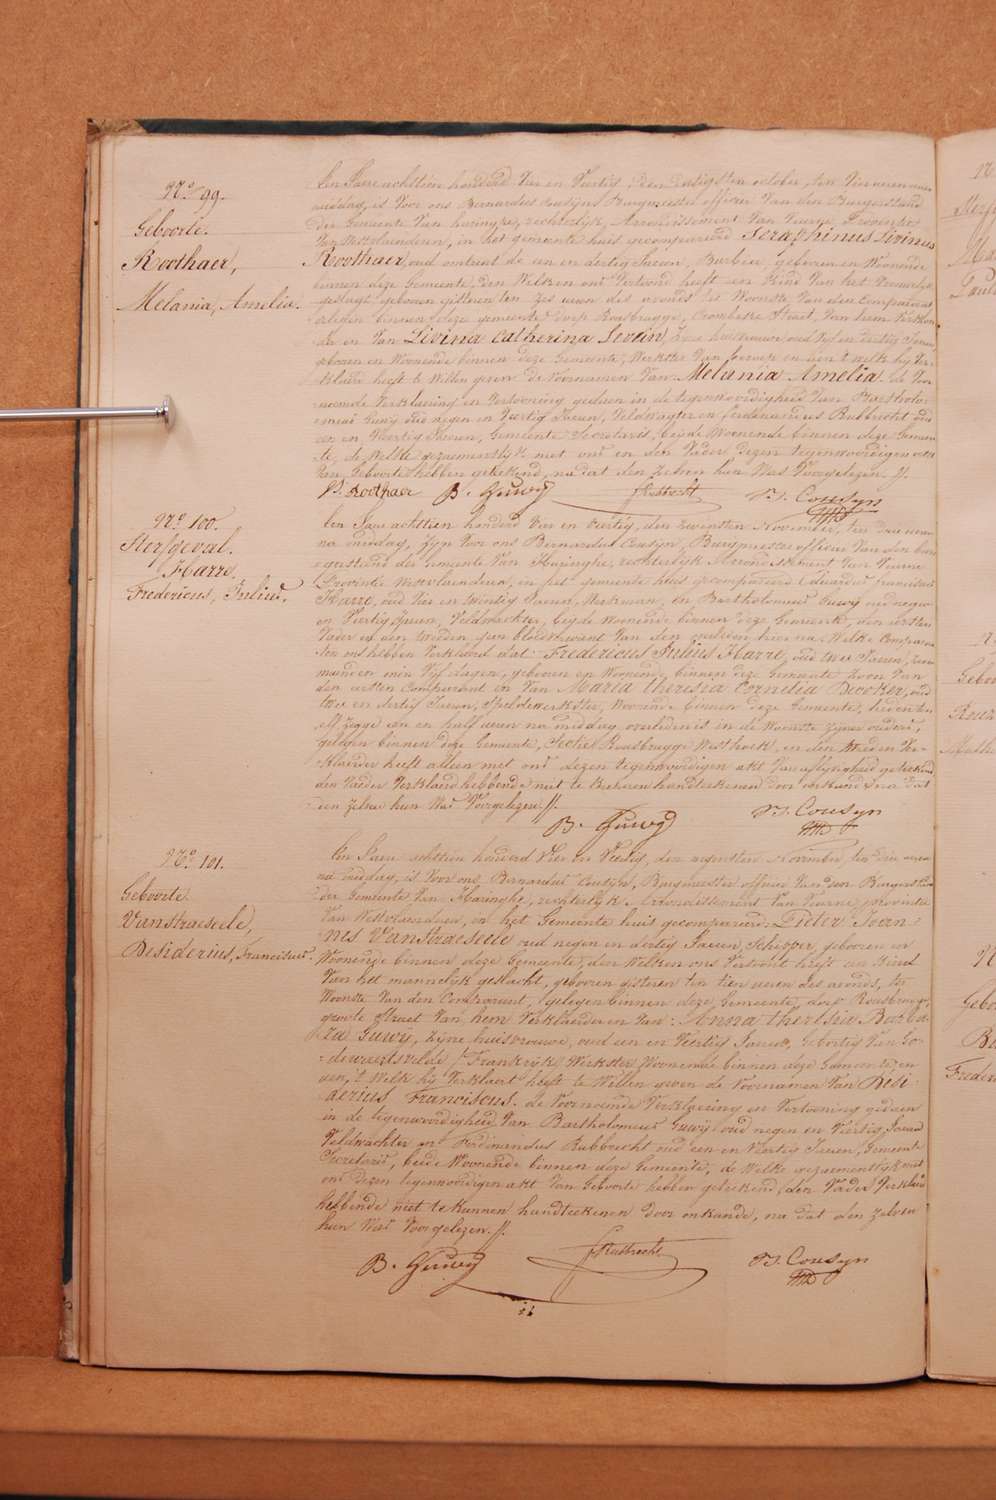 No 99.
Geboorte.
Roothaer,
Melania, Amelia.
Een Jaer achttien honderd Vier en Veertig, den dertigsten october, ten Vier uren
middag, is Voor ons Bernardus Cousyn, Burgmeester officier Van den Burgerstand
der Gemeente Van haringhe, rechterlyk Arrondissement Van Veurne, Provintie
Van Westvlaenderen, in het gemeente huis gecompareerd Seraphinus Livinus
Roothaer, oud omtrent de een en dertig Jaeren, Barbier, geboren en Woonende
binnen deze Gemeente den Welken ons Vertoond heeft een Kind Van het Vrouwelyk
geslagt geboren gisteren ten zes uren des avonds ter Woonste Van den Comparant
gelegen binnen deze gemeente dorp Rousbrugge, Crombeke Straet, Van hem Verklaer
der en Van Livina Catherina Sevrin, zyne huisvrouw oud Vyf en dertig Jaeren
geboren en Woonende binnen deze Gemeente, Werkster Van beroep en aen 't welk hy Ver-
klaerd heeft te Willen geven de Voornamen Van Melania Amelia. de Voor
noemde Verklaering en Vertooning gedaen in de tegenwoordigheid Van Bartholo-
meus Guwy oud negen en Veertig Jaeren, Veldwagter en ferdinandus Rubbrecht oud
een en Veertig Jaeren, Gemeente Secretaris, beyde Woonende binnen deze Gemeen
te, de Welke gezaementlyk met ons en den Vader dezen tegenwoordigen akte
Van Geboorte hebben geteekend, na dat den zelven hun Was Voorgelezen.
S. Roothaer B. Guwy f Rubbrecht B. Cousyn
No 100.
Sterfgeval.
Harre,
Fredericus, Julius.
Een Jaer achttien honderd Vier en Veertig, den Tweesten November, ten drie uren
na middag, Zyn Voor ons Bernardus Cousyn, Burgmeester officier Van den bur
gerstand der Gemeente Van Haringhe, rechterlyk Arrondissement Van Veurne
Provintie Westvlaenderen, in het gemeente huis gecompareerd Eduardus franciscus
Harre, oud Vier en twintig Jaeren, Werkman, en Bartholomeus Guwy oud negen
en Veertig Jaeren, Veldwachter, beyde Woonende binnen deze Gemeente, den eersten
Vader en den tweeden gen bloedverwant Van den overleden hier na, Welke Comparan
ten ons hebben Verklaerd dat: Fredericus Julius Harre, oud twee Jaeren,
maenden min Vyf dagen, geboren en Woonende binnen deze Gemeente Zoon Van
den eersten Comparant en Van Maria Theresia Cornelia Decoker, oud
twee en dertig Jaeren, Speldewerkster, Woonende binnen deze Gemeente, heden ten
elf zegge een en half uren na middag, overleden is in de Woonste zyner ouders,
gelegen binnen deze Gemeente, Sectie Rousbrugge Westhoek, en den tweeden Ver-
klaerder heeft alleen met ons dezen tegenwoordigen akt Van aflyvigheid geteekend
den Vader Verklaerd hebbende niet te kunnen handteekenen door onkunde na dat
den zelve hun Was Voorgelezen.
B. Guwy B. Cousyn
No 101.
Geboorte
Vanstraeseele,
Desiderius, Franciscus.
Een Jaer achttien honderd Vier en Veertig, den negensten November, ten drie uren
na middag, is Voor ons Bernardus Cousyn, Burgmeester officier Van den Burgerstand
der Gemeente Van Haringhe, rechterlyk Arrondissement Van Veurne, provintie
Van Westvlaenderen, in het Gemeente huis gecompareerd: Pieter Joan-
nes Vanstraeseele oud negen en dertig Jaeren, Schipper, geboren en
Woonende binnen deze Gemeente, den Welken ons Vertoont heeft een Kind
Van het mannelyk geslacht, geboren gisteren ten tien uren des avonds, ter
Woonste Van den Comparant, gelegen binnen deze Gemeente, dorp Rousbrugge,
groote straet Van hem Verklaerder en Van: Anna theresia Barba-
ra Guwy, zyne huisvrouwe, oud een en Veertig Jaeren, Geboortig Van Go-
dewaersvelde (Frankryk) Werkster Woonende binnen deze Gemeente, en
aen 't Welk hy Verklaert heeft te Willen geven de Voornamen Van Desi-
derius Franciscus. de Voornoemde Verklaering en Vertooning gedaen
in de tegenwoordigheid Van Bartholomeus Guwy oud negen en Veertig Jaeren
Veldwachter en Ferdinandus Rubbrecht oud een en Veertig Jaeren, Gemeente
Secretaris, beide Woonende binnen deze Gemeente, de Welke gezaementlyk met
ons dezen tegenwoordigen akt Van Geboorte hebben geteekend, den Vader Verklaerd
hebbende niet te kunnen handteekenen door onkunde, na dat den zelven
hun Was Voorgelezen.
B. Guwy f Rubbrecht B. Cousyn